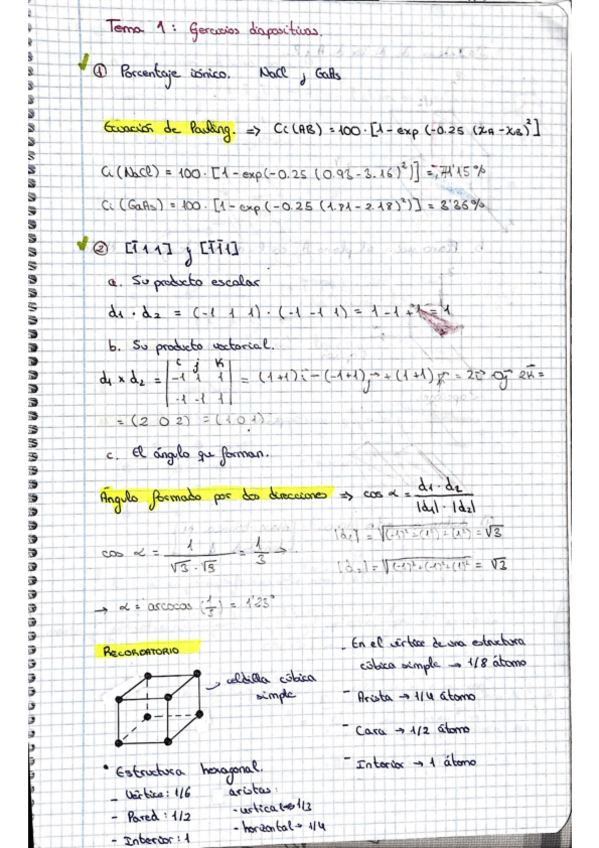 Tema 1: Ejercicios diapositivas.
① Porcentaje iónico. NaCl y GaAs
Ecuación de Pauling. => Ci(AB) = 100 · [1 - exp (-0.25 (XA - XB)²]
Ci (NaCl) = 100 · [1 - exp(-0.25 (0.93 - 3.16)²)] = 71'15%
Ci (GaAs) = 100 · [1 - exp (-0.25 (1.81 - 2.18)²)] = 3'36%
② [1̄ 1 1] y [1̄ 1̄ 1]
a. Su producto escalar
d1 · d2 = (-1 1 1) · (-1 -1 1) = 1 - 1 + 1 = 1
b. Su producto vectorial.
d1 x d2 = | i j k / -1 1 1 / -1 -1 1 | = (1+1)i - (-1+1)j + (1+1)k = 2i 0j 2k =
= (2 0 2) = (1 0 1)
c. El ángulo que forman.
Ángulo formado por dos direcciones => cos α = d1 · d2 / |d1| · |d2|
|d1| = √(-1)² + (1)² + (1)² = √3
cos α = 1 / √3 · √3 = 1/3 →
|d2| = √(-1)² + (-1)² + (1)² = √3
→ α = arcocos (1/3) = 1'23°
RECORDATORIO
→ celdilla cúbica
simple
- En el vértice de una estructura
cúbica simple → 1/8 átomo
- Arista → 1/4 átomo
- Cara → 1/2 átomo
- Interior → 1 átomo
• Estructura hexagonal.
- Vértice: 1/6
- Pared: 1/2
- Interior: 1
aristas:
- vertical → 1/3
- horizontal → 1/4